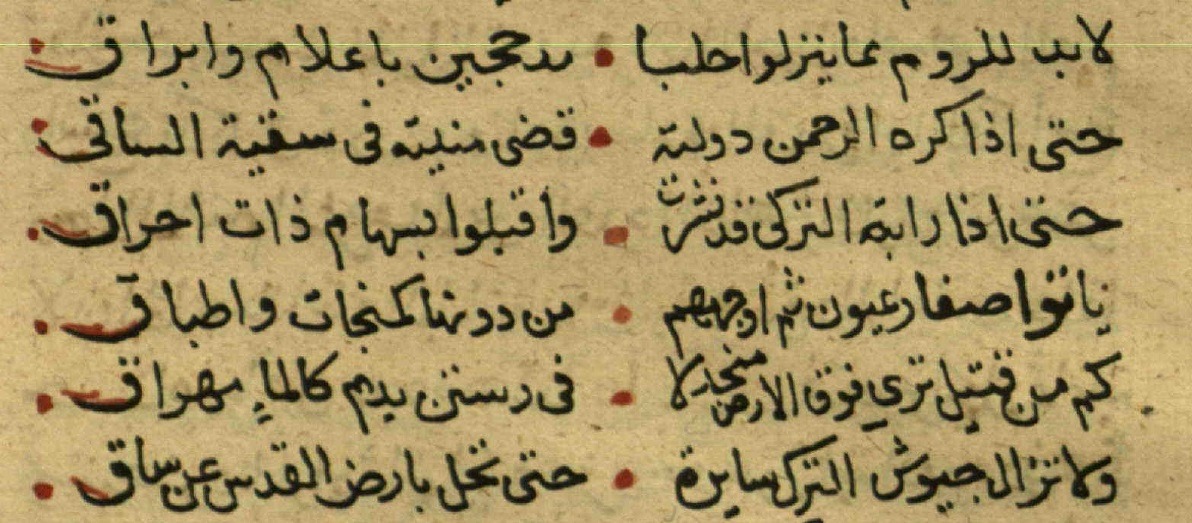 لابد للروم عما ينزلوا حلبا • مدججين باعلام وابراق
حتى اذا كره الرحمن دولته • قضى منيته فى سقية الساقى
حتى اذا راية التركى قد نشرت • واقبلوا بسهام ذات احراق
صغار عيون ثم اوجههم • من دونها كمنجات واطباق
كم من قتيل ترى فوق الارض منجدلا • فى رستن بدم كالماء مهراق
ولا تزال جيوش الترك سايرة • حتى تحل بارض القدس عن ساق